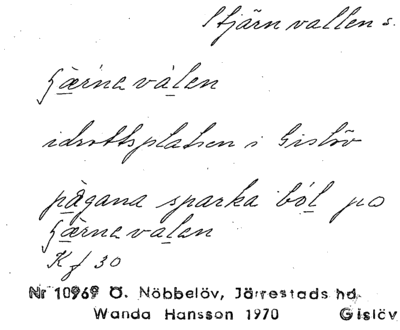 Stjärnvallen s.
ʃæ̱rnavȧ̱len
idrottsplatsen i Gislöv
pȧ̱gana sparka bȯ̱l po
ʃæ̱rnava̱len
Kf 30
Nr 10969 Ö. Nöbbelöv, Järrestads hd.
Wanda Hansson 1970 Gislöv